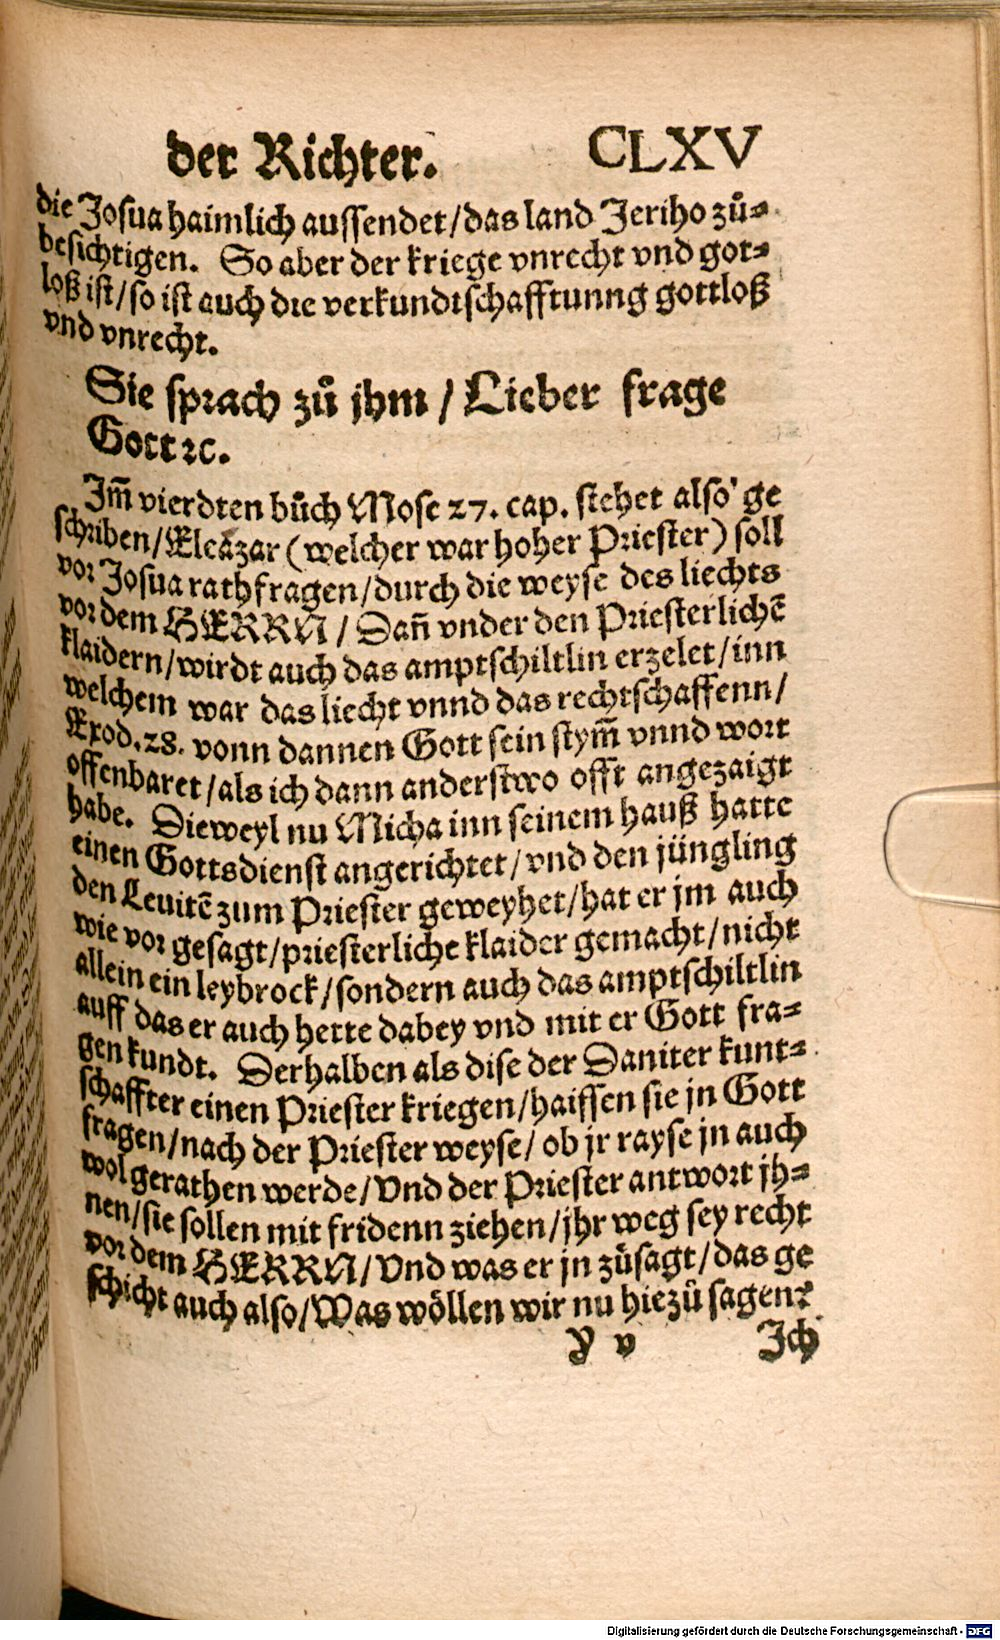 der Richter. CLXV
die Josua haimlich aussendet/das land Jeriho zů⸗
besichtigen. So aber der kriege vnrecht vnd got⸗
loß ist/so ist auch die verkundtschafftunng gottloß
vnd vnrecht.
Sie sprach zů jhm / Lieber frage
Gott ⁊c.
Im̃ vierdten bůch Mose 27. cap. stehet also ge
schriben/Eleazar (welcher war hoher Priester) soll
vor Josua rathfragen/durch die weyse des liechts
vor dem HERRN / Dañ vnder den Priesterlichẽ
klaidern/wirdt auch das amptschiltlin erzelet/inn
welchem war das liecht vnnd das rechtschaffenn/
Exod. 28. vonn dannen Gott sein stym̃ vnnd wort
offenbaret/als ich dann anderstwo offt angezaigt
habe. Dieweyl nu Micha inn seinem hauß hatte
einen Gottsdienst angerichtet/vnd den jüngling
den Leuitẽ zum Priester geweyhet/hat er jm auch
wie vor gesagt/priesterliche klaider gemacht/nicht
allein ein leybrock/sondern auch das amptschiltlin
auff das er auch hette dabey vnd mit er Gott fra⸗
gen kundt. Derhalben als dise der Daniter kunt⸗
schaffter einen Priester kriegen/haissen sie jn Gott
fragen/nach der Priester weyse/ ob jr rayse jn auch
wol gerathen werde/Vnd der Priester antwort jh⸗
nen/sie sollen mit fridenn ziehen/jhr weg sey recht
vor dem HERRN/Vnd was er jn zůsagt/das ge
schicht auch also/Was wöllen wir nu hiezů sagen?
Y v Ich
Digitalisierung gefördert durch die Deutsche Forschungsgemeinschaft - DFG